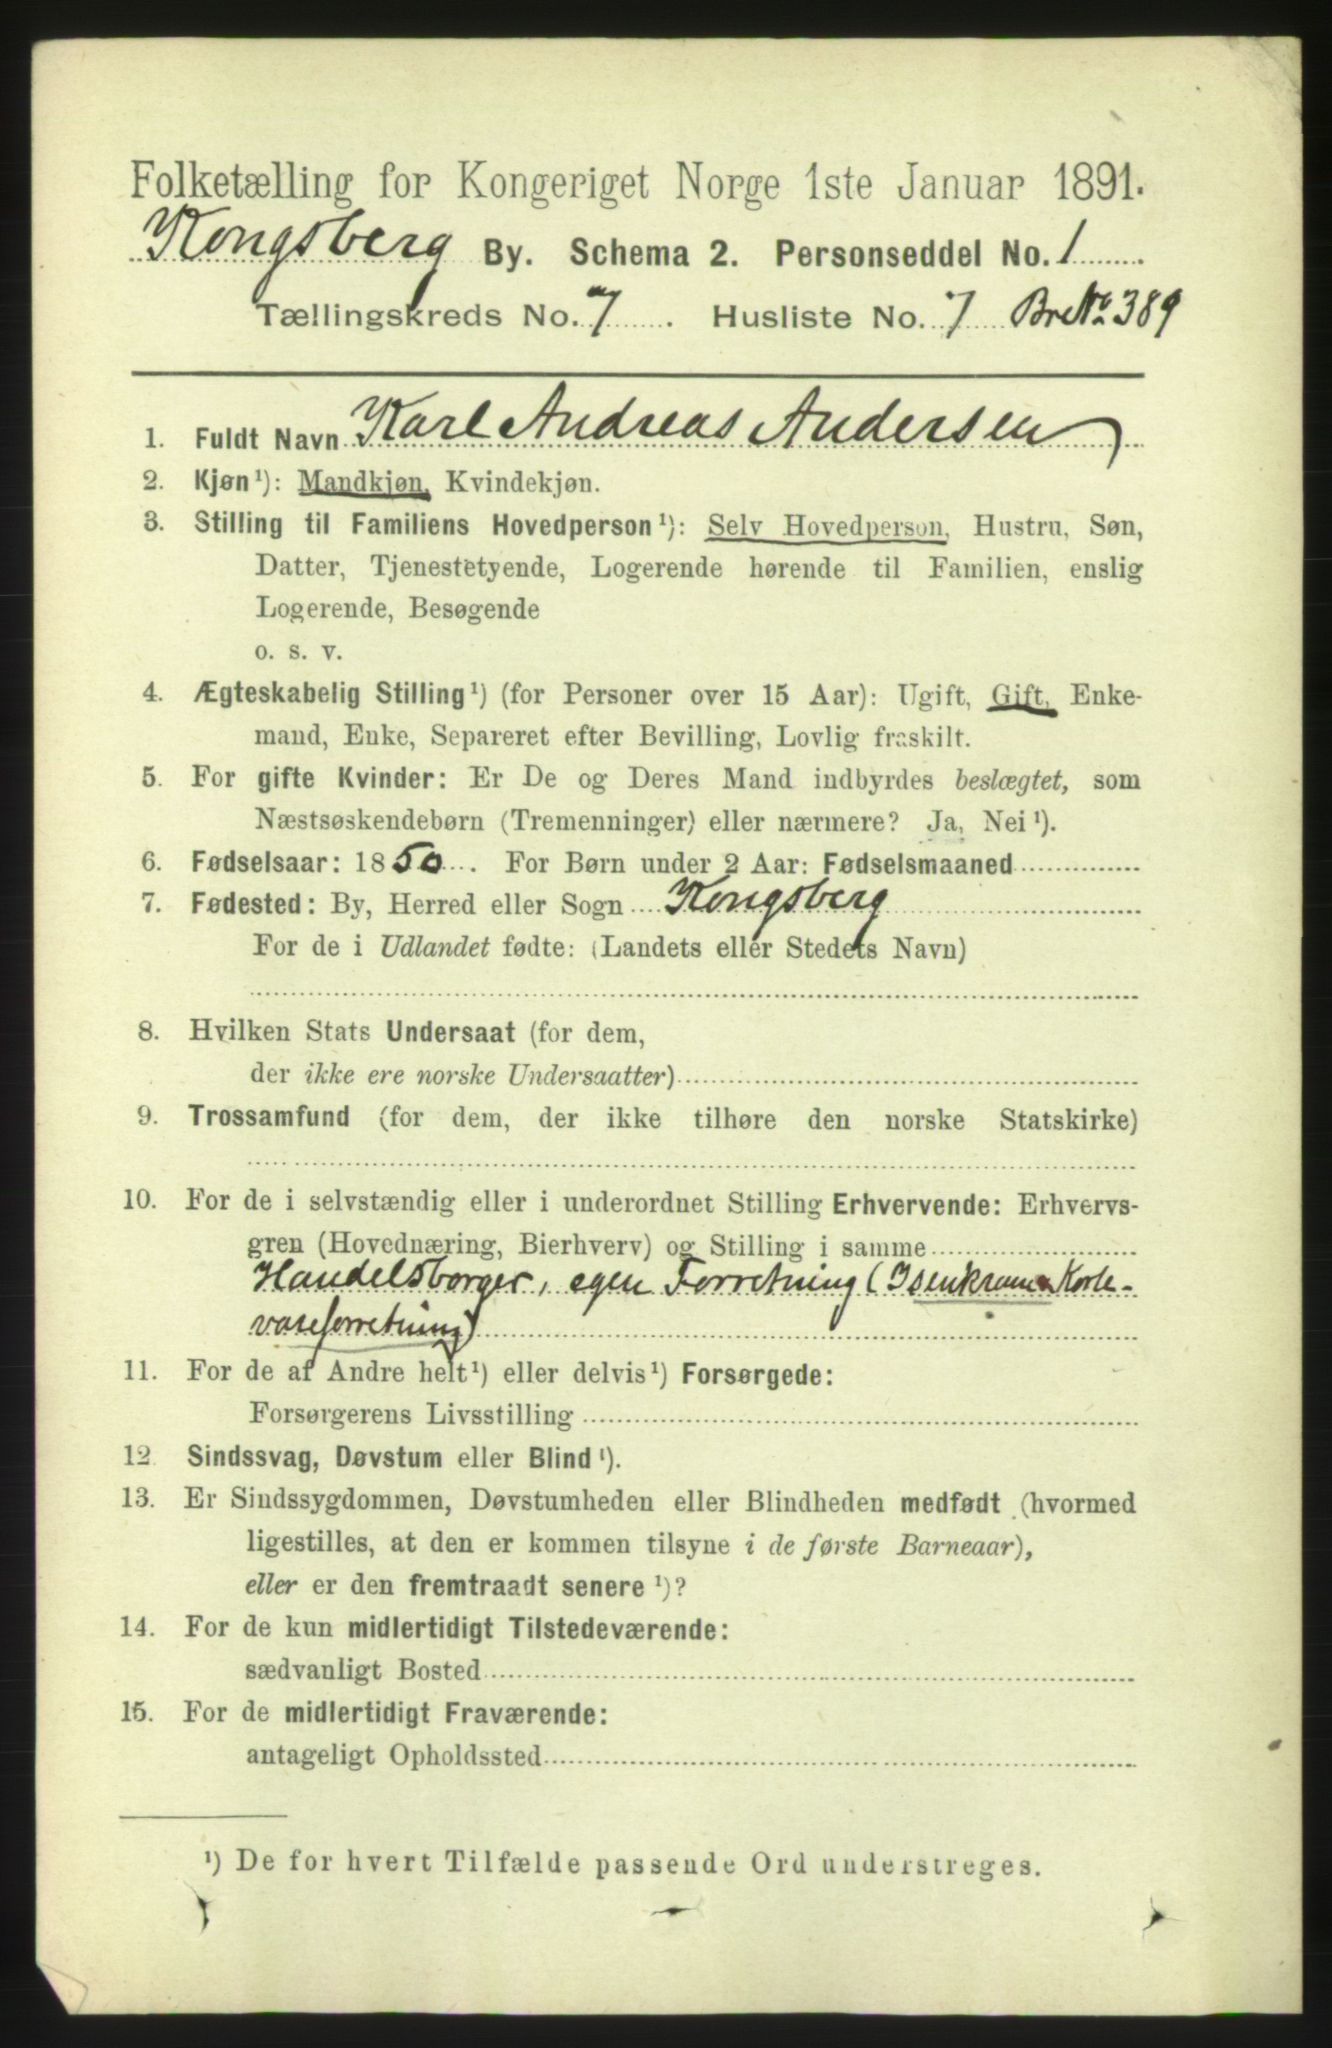 Folketælling for Kongeriget Norge 1ste Januar 1891.
Kongsberg By. Schema 2. Personseddel No. 1
Tællingskreds No. 7. Husliste No. 7 Br No. 389
1. Fuldt Navn Karl Andreas Andersen
2. Kjøn¹): Mandkjøn, Kvindekjøn.
3. Stilling til Familiens Hovedperson¹): Selv Hovedperson, Hustru, Søn,
Datter, Tjenestetyende, Logerende hørende til Familien, enslig
Logerende, Besøgende
o. s. v.
4. Ægteskabelig Stilling¹) (for Personer over 15 Aar): Ugift, Gift, Enke-
mand, Enke, Separeret efter Bevilling, Lovlig fraskilt.
5. For gifte Kvinder: Er De og Deres Mand indbyrdes beslægtet, som
Næstsøskendebørn (Tremenninger) eller nærmere? Ja, Nei¹).
6. Fødselsaar: 1850. For Børn under 2 Aar: Fødselsmaaned
7. Fødested: By, Herred eller Sogn Kongsberg
For de i Udlandet fødte: (Landets eller Stedets Navn)
8. Hvilken Stats Undersaat (for dem,
der ikke ere norske Undersaatter)
9. Trossamfund (for dem, der ikke tilhøre den norske Statskirke)
10. For de i selvstændig eller i underordnet Stilling Erhvervende: Erhvervs-
gren (Hovednæring, Bierhverv) og Stilling i samme
Handelsborger, egen Forretning (Isenkram
vareforretning)
11. For de af Andre helt¹) eller delvis¹) Forsørgede:
Forsørgerens Livsstilling
12. Sindssvag, Døvstum eller Blind¹).
13. Er Sindssygdommen, Døvstumheden eller Blindheden medfødt (hvormed
ligestilles, at den er kommen tilsyne i de første Barneaar),
eller er den fremtraadt senere¹)?
14. For de kun midlertidigt Tilstedeværende:
sædvanligt Bosted
15. For de midlertidigt Fraværende:
antageligt Opholdssted
¹) De for hvert Tilfælde passende Ord understreges.